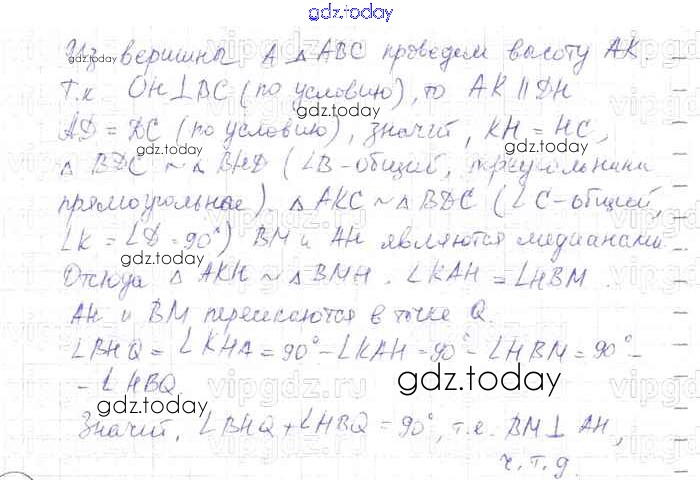 gdz.today
Из вершины A △ ABC проведем высоту AK.
Т.к DH⊥BC (по условию), то AK ∥ DH
gdz.today
AD = DC (по условию), значит, KH = HC,
△ BDC ~ △ BHD (∠B-общий, треугольники
прямоугольные). △ AKC ~ △ BDC (∠C-общий,
∠K = ∠D = 90°) BM и AH являются медианами
Отсюда △ AKH ~ △ BMH. ∠KAH = ∠HBM.
gdz.today
AH и BM пересекаются в точке Q.
∠BHQ = ∠KHA = 90° - ∠KAH = 90° - ∠HBM = 90° -
- ∠HBQ
gdz.today
gdz.today
Значит, ∠BHQ + ∠HBQ = 90°, т.е. BM ⊥ AH,
ч.т.д.
gdz.today